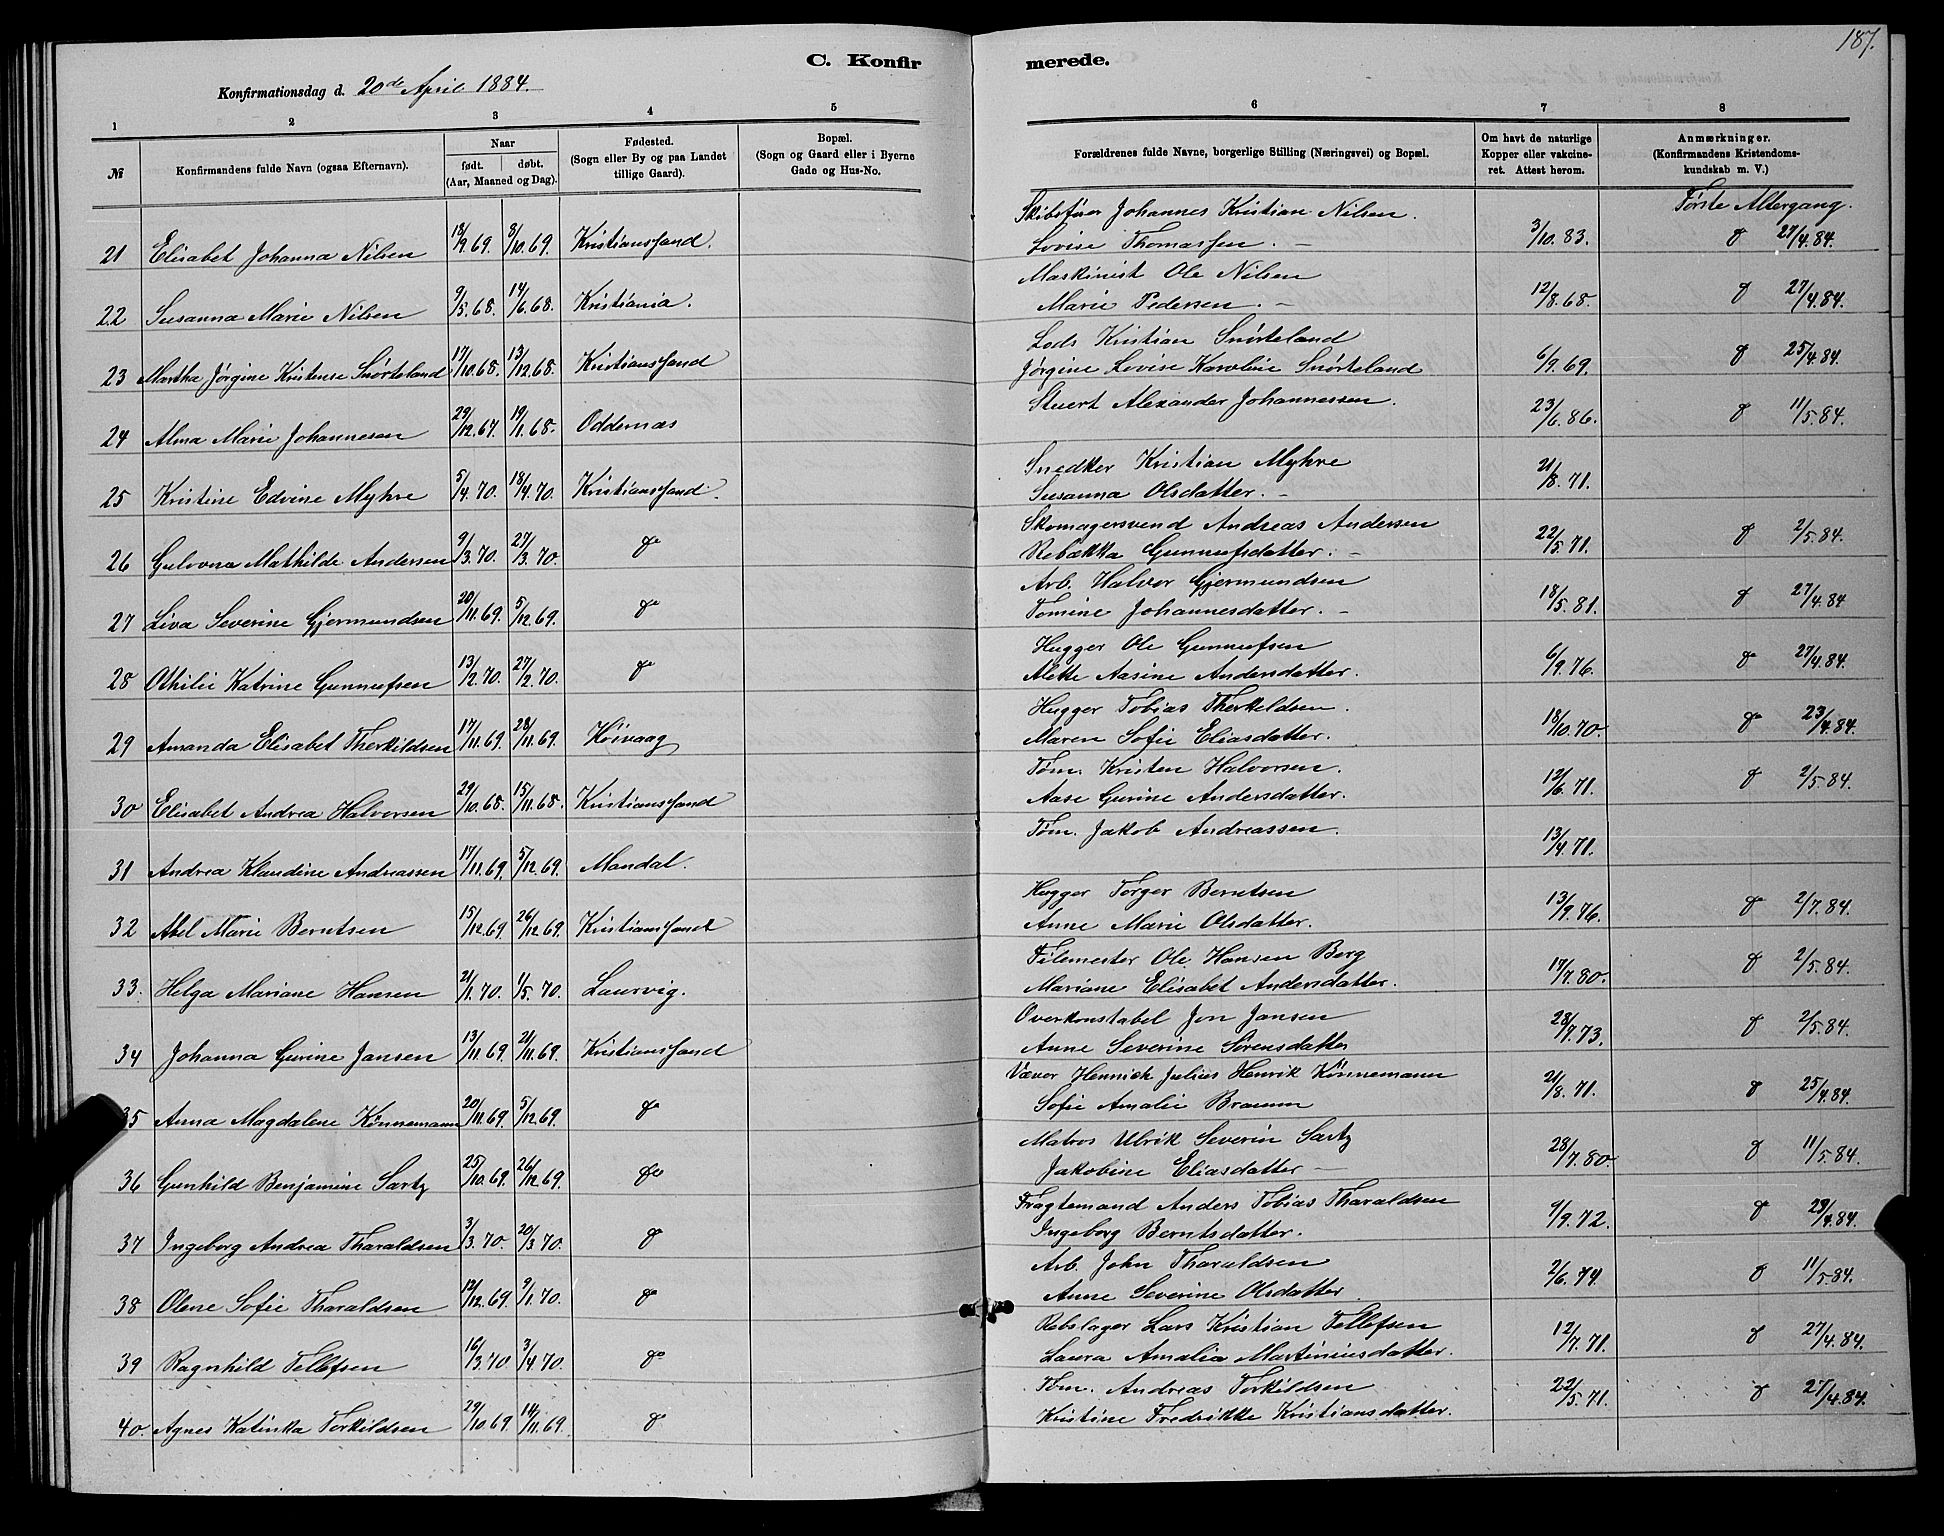 187.
C. Konfirmerede.
Konfirmationsdag d. 20de April 1884.
1 2 3 4 5 6 7 8
№ Konfirmandens fulde Navn (ogsaa Efternavn). Naar født. døbt. (Aar, Maaned og Dag). Fødested. (Sogn eller By og paa Landet tillige Gaard). Bopæl. (Sogn og Gaard eller i Byerne Gade og Hus-No. Forældrenes fulde Navne, borgerlige Stilling (Næringsvei) og Bopæl. Om havt de naturlige Kopper eller vakcineret. Attest herom. Anmærkninger. (Konfirmandens Kristendomskundskab m. V.)
Første Altergang.
Skibsfører Johannes Kristian Nilsen.
21 Elisabet Johanna Nilsen 18/9.69. 8/10.69. Kristianssand. Lovise Thomassen. – 3/10.83. do 27/4.84.
Maskinist Ole Nilsen
22 Susanna Marie Nilsen 9/5.68. 14/6.68. Kristiania. Marie Pedersen. – 12/8.68. do 27/4.84.
Lods Kristian Snørteland
23 Martha Jørgine Kristense Snørteland 17/10.68. 13/12.68. Kristianssand Jørgine Lovise Karoline Snørteland 6/9.69. do 25/4.84.
24 Alma Marie Johannesen 29/12.67. 19/1.68. Oddernæs Stuert Alexander Johannessen. 23/6.86. do 11/5.84.
Snedker Kristian Myhre
25 Kristine Edvine Myhre 5/4.70. 18/4.70. Kristianssand. Susanna Olsdatter. – 21/8.71.
Skomagersvend Andreas Andersen
26 Gulovna Mathilde Andersen 9/3.70. 27/3.70. do Rebækka Gunnufsdatter. – 22/5.71. do 2/5.84.
Arb. Halvor Gjermundsen
27 Liva Severine Gjermundsen 20/11.69. 5/12.69. do Tomine Johannesdatter. – 18/5.81. do 27/4.84
Hugger Ole Gunnufsen
28 Othilie Katrine Gunnufsen 13/2.70. 27/2.70. do Alette Aasine Andersdatter. 6/9.76. do 27/4.84.
Hugger Tobias Therkeldsen.
29 Amanda Elisabet Therkildsen 17/11.69. 28/11.69. Høivaag Maren Sofie Eliasdatter. 18/10.70. do 23/4.84.
Tøm. Kristen Halvorsen.
30 Elisabet Andrea Halvorsen 29/10.68. 15/11.68. Kristianssand Aase Gurine Andersdatter. 12/6.71. do 2/5.84.
Tøm. Jakob Andreassen.
31 Andrea Klaudine Andreassen 17/11.69. 5/12.69. Mandal. 13/4.71.
Hugger Torger Berntsen
32 Abel Marie Berntsen 15/12.69. 26/12.69. Kristianssand Anne Marie Olsdatter. 13/9.76. do 2/7.84.
Filemester Ole Hansen Berg
33. Helga Mariane Hansen 21/1.70. 1/5.70. Laurvig. Mariane Elisabet Andersdatter. 17/7.80. do 2/5.84.
Overkonstabel Jon Jansen
34 Johanna Gurine Jansen 13/11.69. 21/11.69. Kristianssand Anne Severine Sørensdatter 28/7.73. do 2/5.84.
Væver Hennich Julius Henrik Kønnemann
35 Anna Magdalene Kønnemann 20/11.69. 5/12.69. do Sofie Amalie Braunn 21/8.71. do 25/4.84.
Matros Ulrik Severin Sartz
36 Gunhild Benjamine Sartz 25/10.69. 26/12.69. do Jakobine Eliasdatter – 28/7.80. do 11/5.84.
Fragtemand Anders Tobias Tharaldsen
37 Ingeborg Andrea Tharaldsen 3/3.70. 20/3.70. do Ingeborg Berntsdatter. 9/9.72. do 23/4.84.
Arb. John Tharaldsen
38 Olene Sofie Tharaldsen 12/12.69. 9/1.70. do Anne Severine Olsdatter 2/6.74. do 11/5.84.
Rebslager Lars Kristian Tellefsen
39 Ragnhild Tellefsen 16/3.70. 3/4.70. do Laura Amalia Martiniusdatter. 12/7.71. do 27/4.84.
Tøm. Andreas Torkildsen
40. Agnes Katinka Torkildsen 29/10.69. 14/11.69. do Kristine Fredrikke Kristiansdatter. 22/5.71. do 27/4.84.